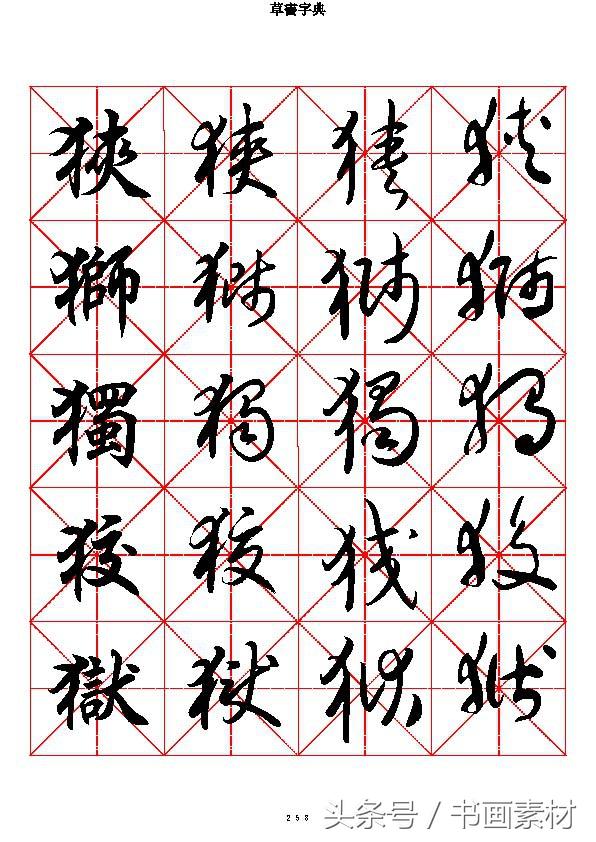 草書字典
狹 狹 狹 狹
獅 獅 獅 獅
獨 獨 獨 獨
狡 狡 狡 狡
獄 獄 獄 獄
258
头条号 / 书画素材